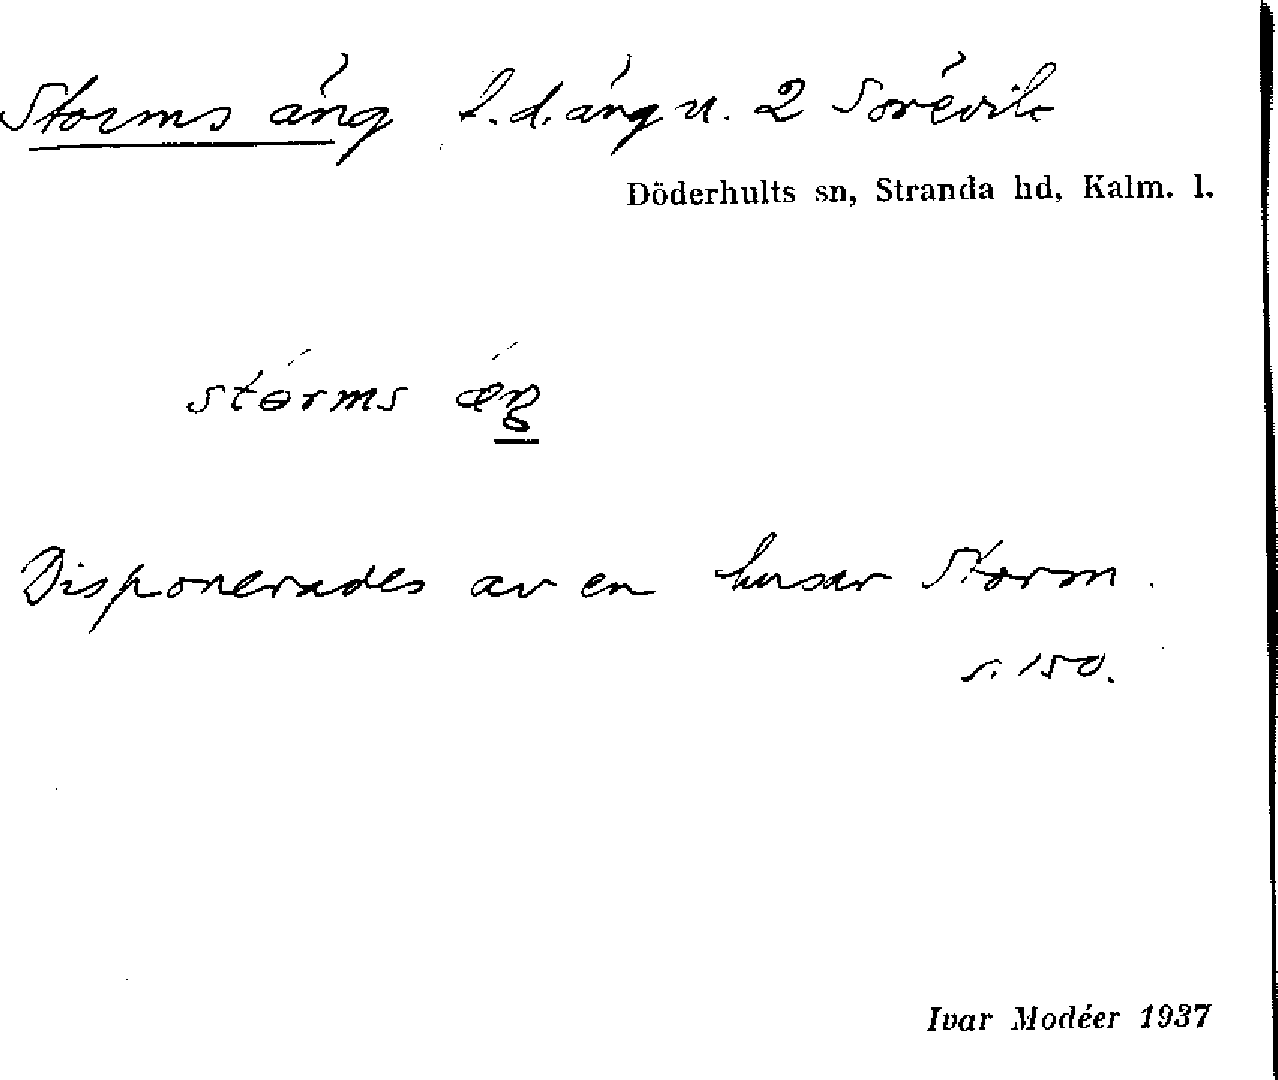 Storms äng f. d. äng u. 2 Sörevik
Döderhults sn, Stranda hd, Kalm. l.
Disponerades av en husar Storm.
s. 150.
Ivar Modéer 1937